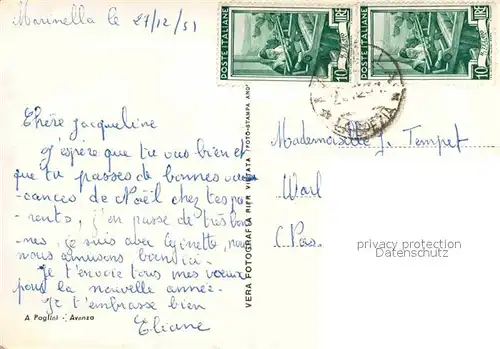 Marinella le 27/12/51
POSTE ITALIANE
LIRE 10
POSTE ITALIANE
LIRE 10
LA SPEZIA
Chère Jacqueline
j'espère que tu vas bien et
que tu passes de bonnes va
-cances de Noël chez tes pa
-rents, j'en passe de très bon
-nes, je suis avec Ginette, nous
nous amusons bien ici.
Je t'envoie tous mes vœux
pour la nouvelle année.
Je t'embrasse bien
Eliane
A Paglini - Avenza
VERA FOTOGRAFIA RIPR. VIETATA
Mademoiselle J. Tempet
Warl
(Pas
privacy protection
Datenschutz